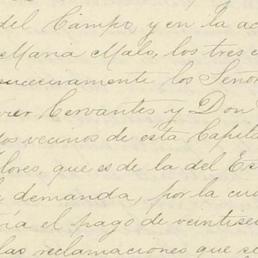 del Campo, y en la ac
María Malo, los tres
sucesivamente los Seño
Cervantes y Don
vecinos de esta Capita
lores, que es de la del Es
demanda, por la cua
ría el pago de veintise
las reclamaciones que se